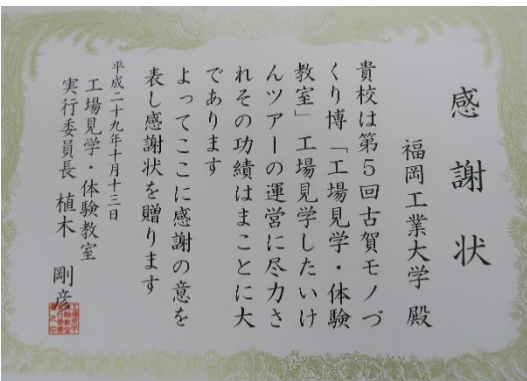 感謝状
福岡工業大学 殿
貴校は第5回古賀モノづ
くり博「工場見学・体験
教室」工場見学したいけ
んツアーの運営に尽力さ
れその功績はまことに大
であります
よってここに感謝の意を
表し感謝状を贈ります
平成二十九年十月十三日
工場見学・体験教室
実行委員長 植木 剛彦